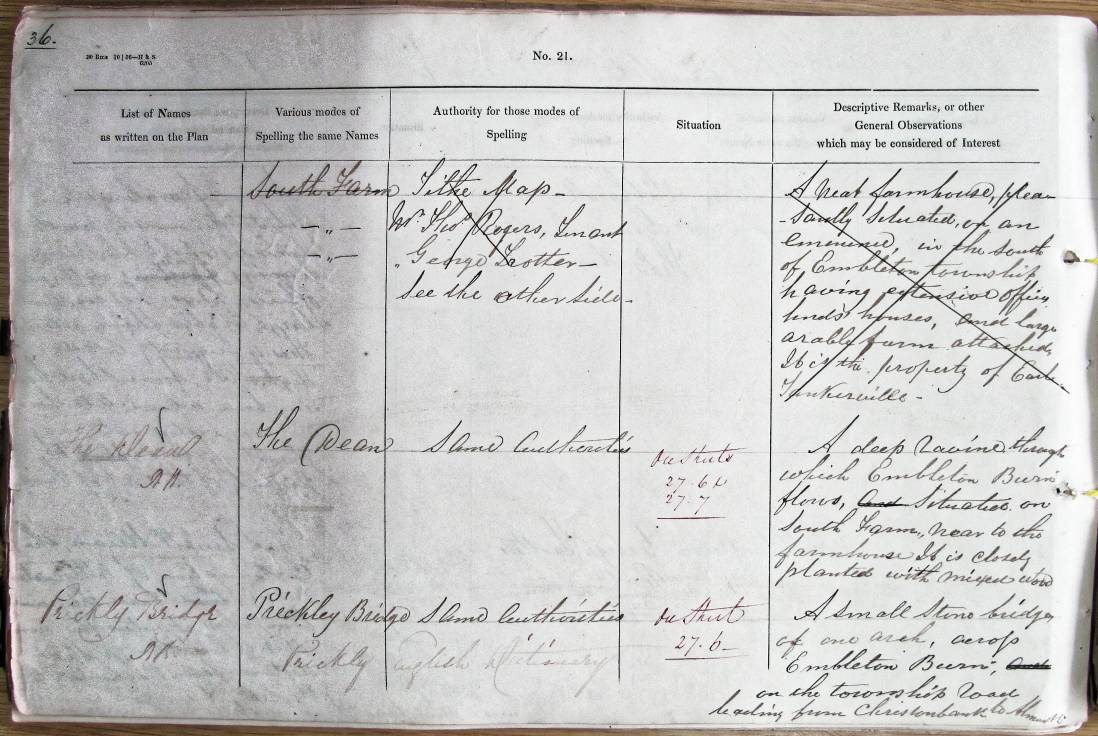 36.
No. 21.
List of Names
as written on the Plan
Various modes of
Spelling the same Names
Authority for those modes of
Spelling
Situation
Descriptive Remarks, or other
General Observations
which may be considered of Interest
South Farm
Tithe Map
Mr Thos Rogers, Tenant
"George Trotter
See the other side
A neat farmhouse, plea
-santly Situated, on an
eminence, in the South
of Embleton township
having extensive offices
hinds' houses, and large
arable farm attached,
It is the property of Earl
Tankerville
The Dean
The Dean
Same Authorities
On Sheets
27. 6 &
27. 7
A deep ravine through
which Embleton Burn
flows, and Situated on
South Farm, near to the
farmhouse It is closely
planted with mixed wood
Prickly Bridge
Préckley Bridge
Prickly
Same Authorities
English Dictionary
On Sheet
27. 6
A small stone bridge
of one arch, across
Embleton Burn, and
on the township road
leading from Christonbank to